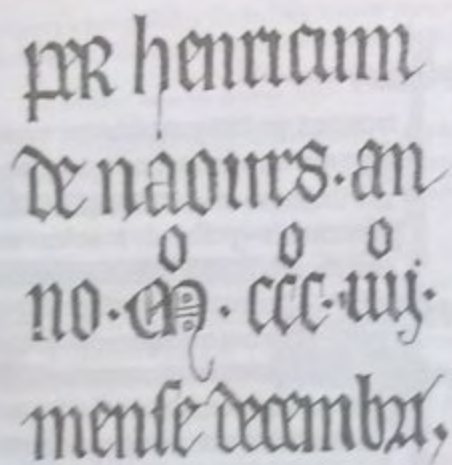 peR henricum
de naours·an
no·Mͦ·cccͦ·iiijͦ·
menſe decembri,